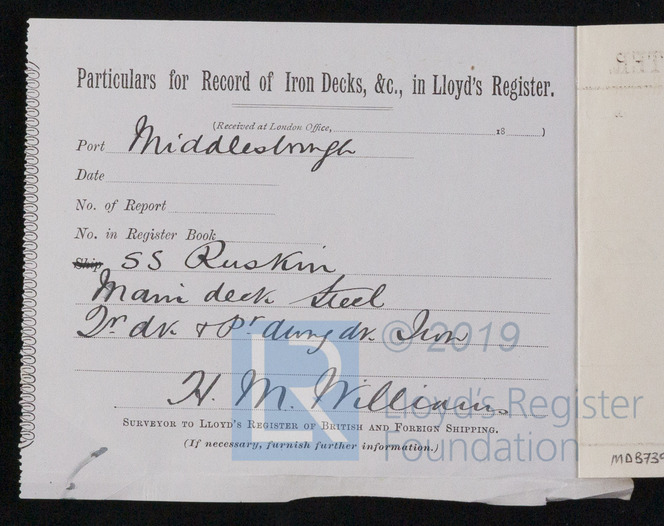 Particulars for Record of Iron Decks, &c., in Lloyd's Register.
(Received at London Office, 18 )
Port Middlesbrough
Date
No. of Report
No. in Register Book
Ship SS Ruskin
Main deck Steel
Qr dk. & Pt awng dk. Iron
© 2019
H. M. Williams
Lloyd's Register
Foundation
SURVEYOR TO LLOYD'S REGISTER OF BRITISH AND FOREIGN SHIPPING.
(If necessary, furnish further information.)